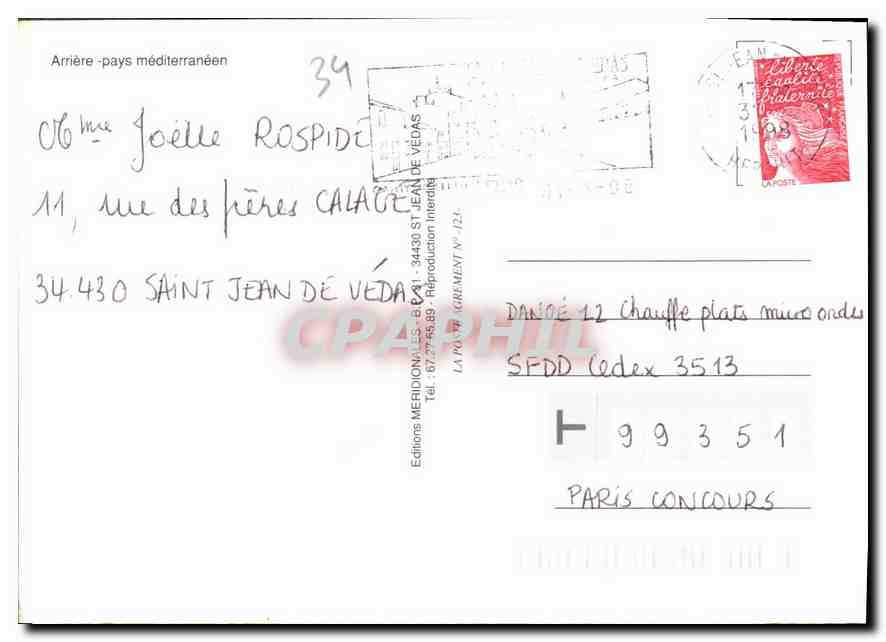 Arrière -pays méditerranéen
34
Mme Joëlle ROSPIDE
11, rue des frères CALAGE
34.430 SAINT JEAN DE VÉDAS
Editions MERIDIONALES - B.P. 31 - 34430 ST JEAN DE VEDAS
Tél. : 67.27.55.89 - Réproduction Interdite
LA POSTE AGREMENT N° -123-
ST JEAN
17
3
1998
HERAULT
Liberté
égalité
fraternité
LA POSTE
DANOÉ 12 Chauffe plats micro ondes
SFDD Cedex 3513
T 99351
PARIS CONCOURS
CPAPHIL